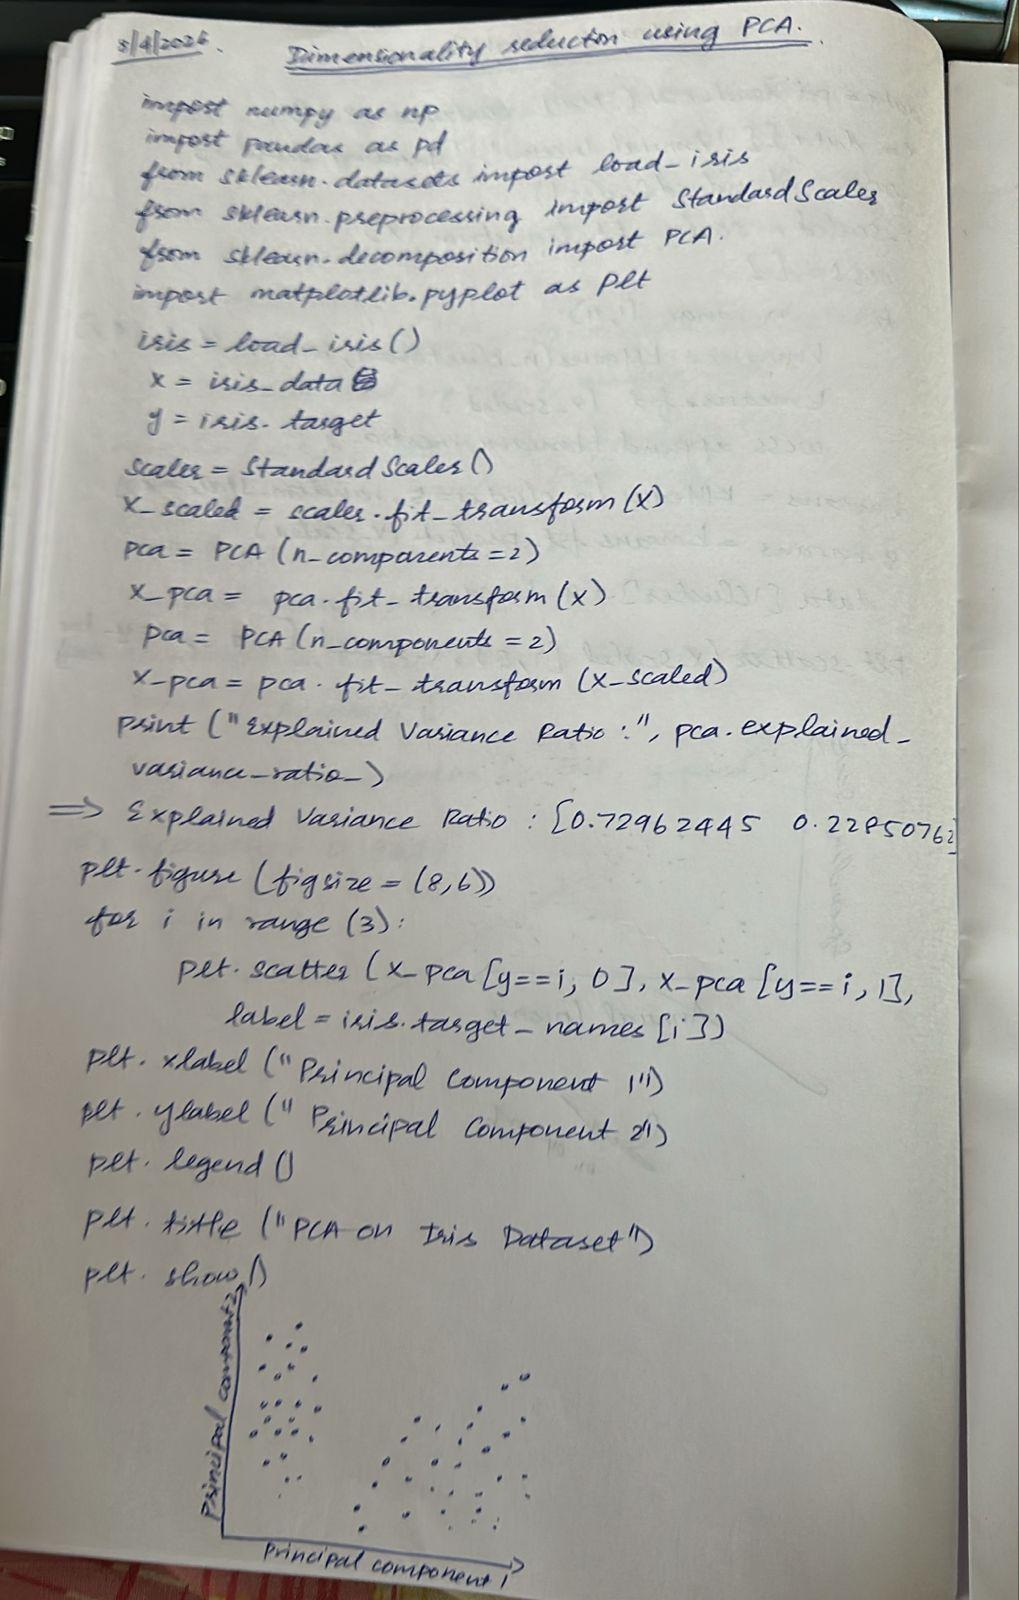 8/4/2026.
Dimensionality reduction using PCA.
import numpy as np
import pandas as pd
from sklearn.datasets import load_iris
from sklearn.preprocessing import StandardScaler
from sklearn.decomposition import PCA.
import matplotlib.pyplot as plt
iris = load_iris()
x = iris_data
y = iris.target
scaler = StandardScaler()
X_scaled = scaler.fit_transform(X)
pca = PCA (n_components=2)
X_pca = pca.fit_transform(X)
pca = PCA (n_components = 2)
X_pca = pca.fit_transform (X_scaled)
print ("Explained Variance Ratio:", pca.explained_
variance_ratio_)
=> Explained Variance Ratio : [0.72962445 0.22850762]
plt.figure (figsize = (8,6))
for i in range (3):
plt.scatter (X_pca [y==i, 0], X_pca [y==i, 1],
label = iris.target_names [i])
plt.xlabel ("Principal Component 1")
plt.ylabel ("Principal Component 2")
plt.legend ()
plt.title ("PCA on Iris Dataset")
plt.show ()
Principal component 2
Principal component 1